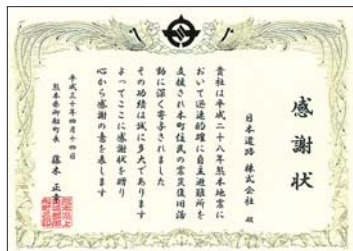 感謝状
日本道路株式会社 殿
貴社は平成二十八年熊本地震に
おいて迅速的確に自主避難所を
支援され本町住民の震災復旧活
動に深く寄与されました
その功績は誠に多大であります
よってここに感謝状を贈り
心から感謝の意を表します
平成三十年四月十四日
熊本県御船町長 藤木 正